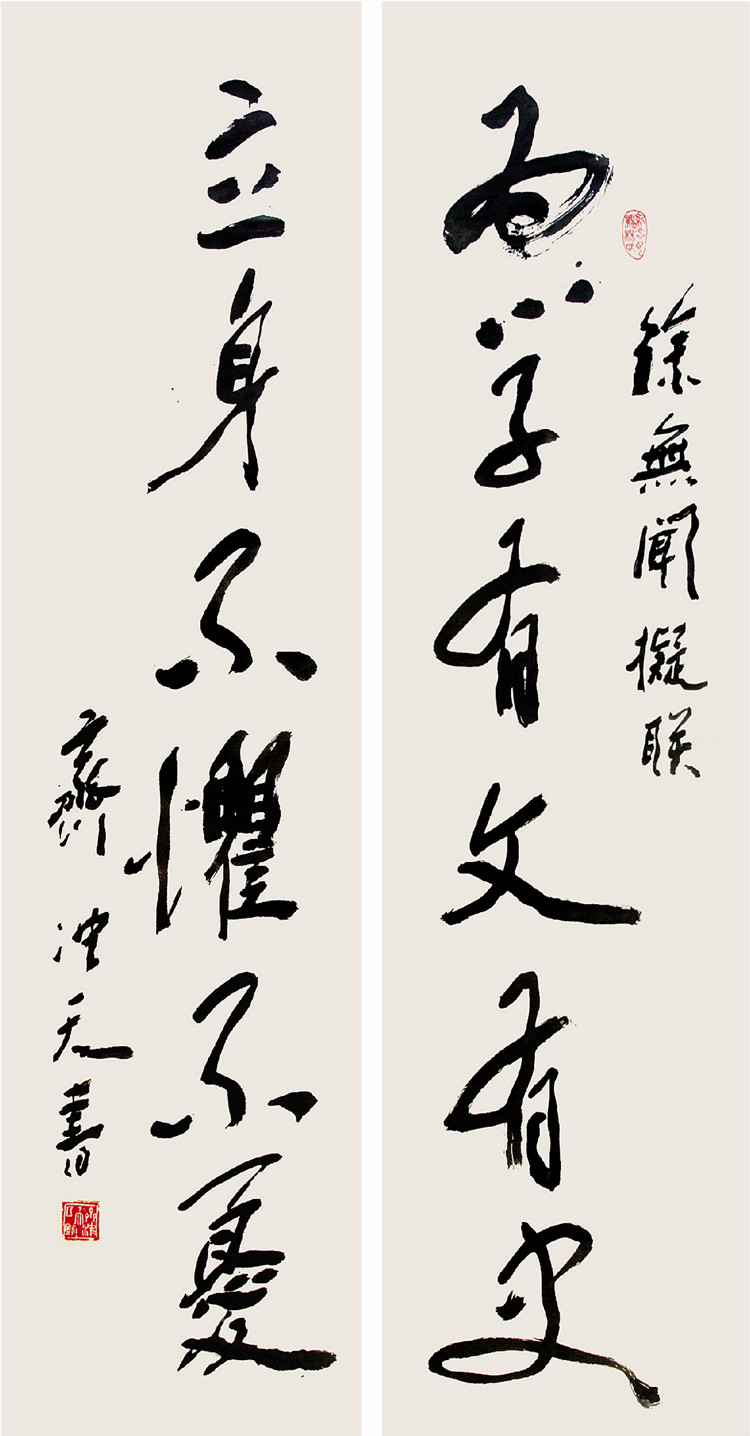 徐無聞擬联
為学有文有史
立身不懼不憂
齊冲天書